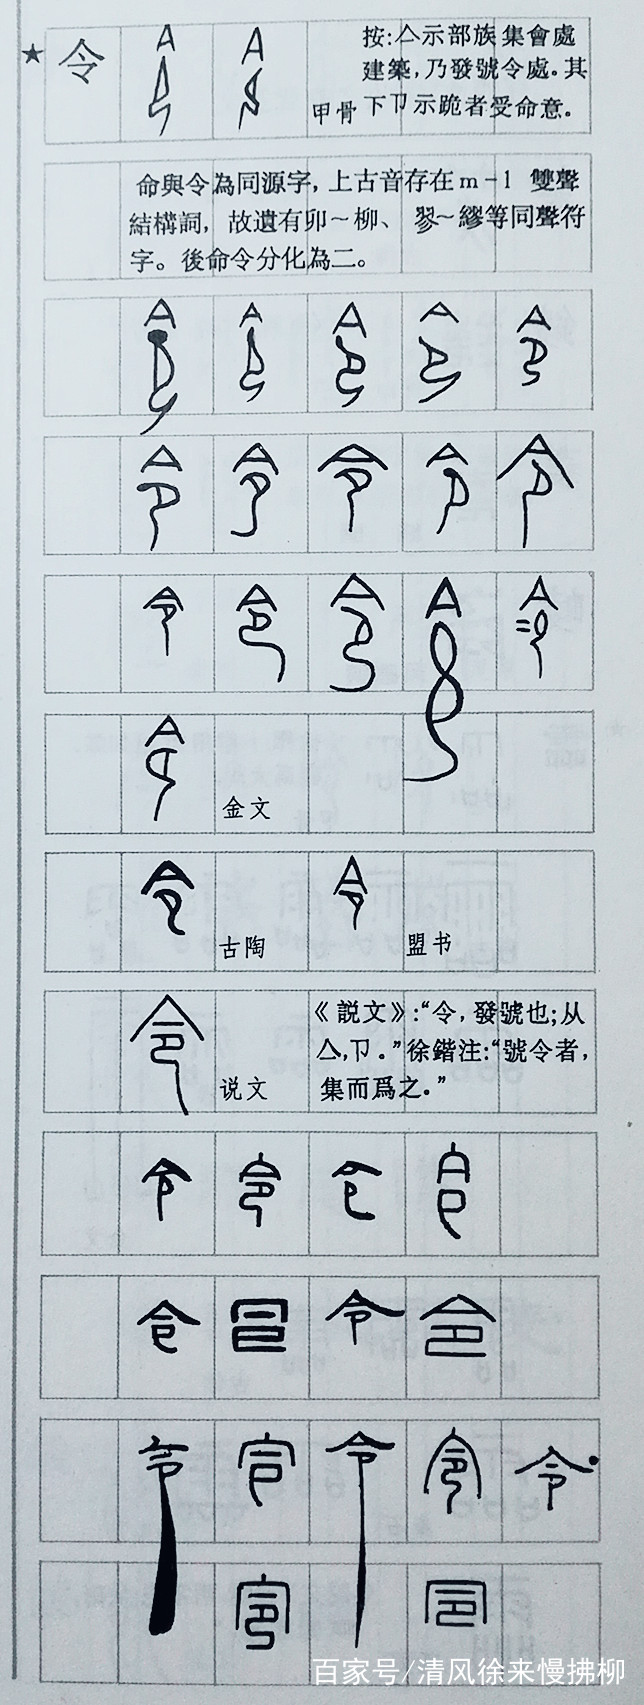 ★ 令
按:亼示部族集會處
建築,乃發號令處。其
甲骨 下卩示跪者受命意。
命與令為同源字,上古音存在m-l 雙聲
結構詞,故遺有卯~柳、翏~繆等同聲符
字。後命令分化為二。
金文
古陶
盟书
《説文》:“令,發號也;从
亼,卩。”徐鍇注:“號令者,
集而爲之。”
说文
百家号/清风徐来慢拂柳